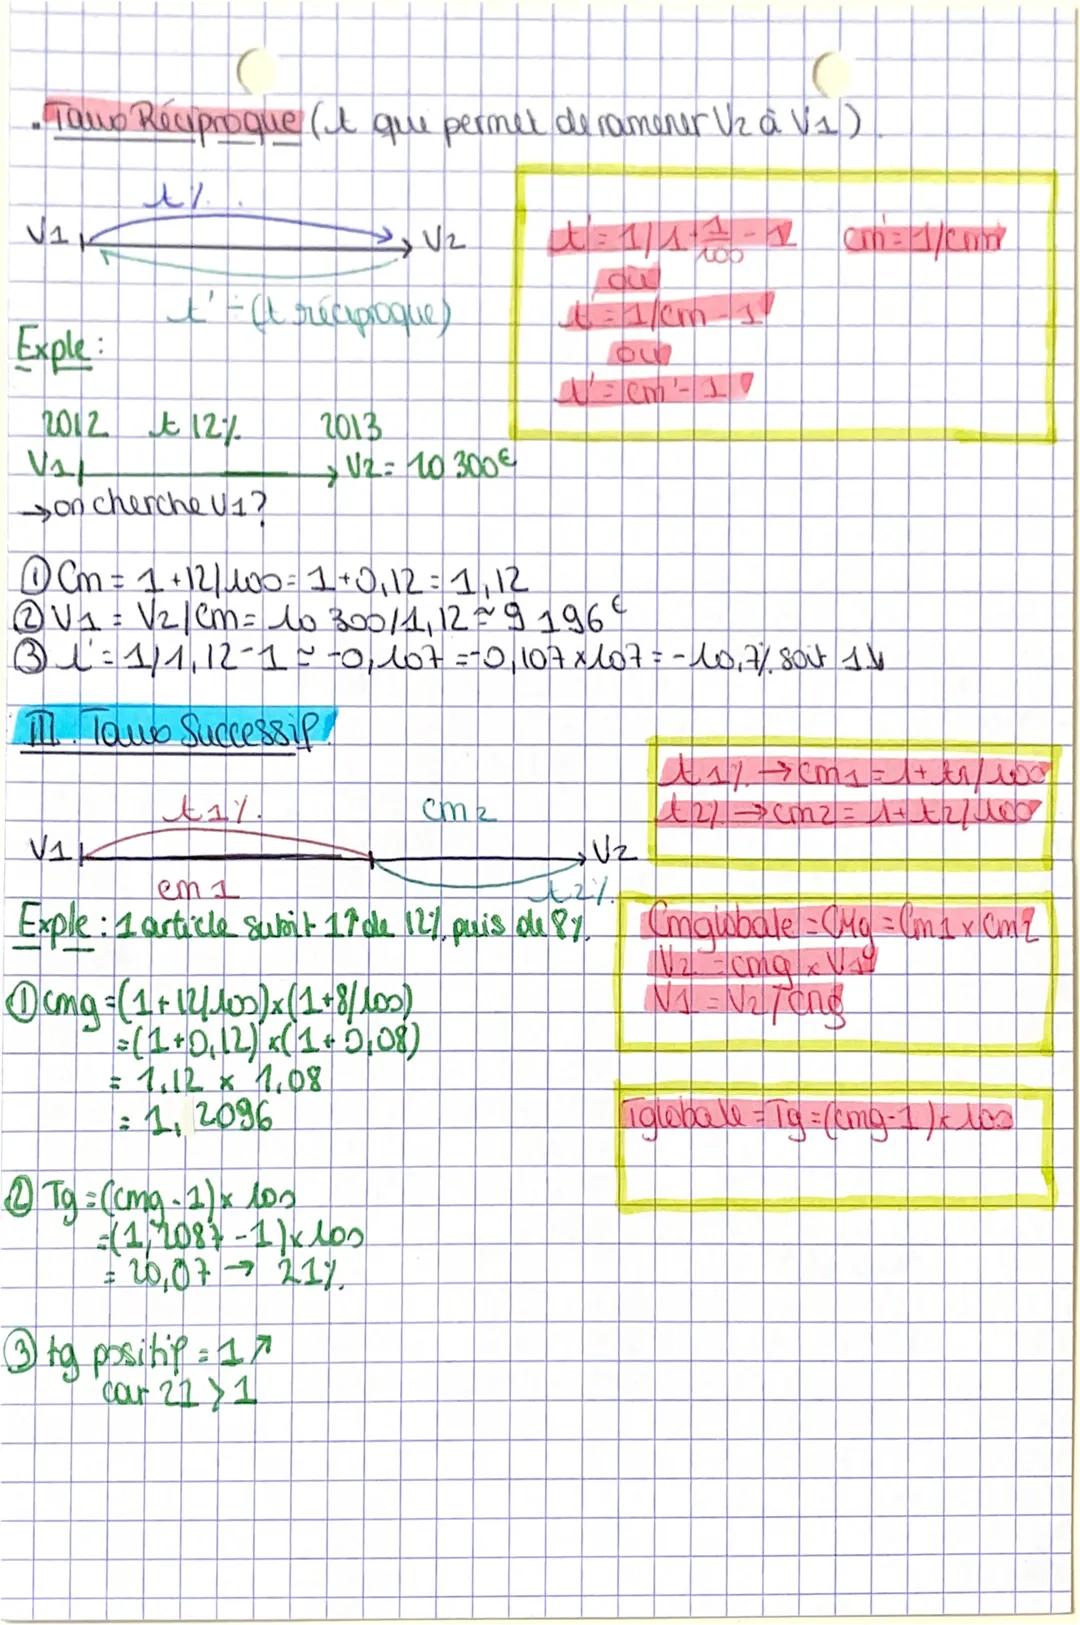 . Taux Réciproque (t que permet de ramener V2 à V1).
t%
V1 V2
t' = (t réciproque)
t' = 1/1+1/100 - 1 cm' = 1/cm
ou
t = 1/cm - 1
ou
t' = cm' - 1
Exple :
2012 t 12% 2013
V1 V2 = 10 300€
→ on cherche V1?
① Cm = 1 + 12/100 = 1 + 0,12 = 1,12
② V1 = V2/Cm = 10 300/1,12 ≈ 9 196€
③ t' = 1/1,12 - 1 ≈ -0,107 = -0,107 x 107 = -10,7% soit 1↘
III. Taux Successif.
t1% cm2
V1 V2
cm1 t2%
t1% → cm1 = 1 + t1/100
t2% → cm2 = 1 + t2/100
Exple : 1 article subit 1↑ de 12% puis de 8%.
Cmglobale = CMg = Cm1 x Cm2
V2 = cmg x V1
V1 = V2/cmg
① cmg = (1 + 12/100) x (1 + 8/100)
= (1 + 0,12) x (1 + 0,08)
= 1,12 x 1,08
= 1,2096
Tglobale = Tg = (cmg - 1) x 100
② Tg = (cmg - 1) x 100
= (1,2087 - 1) x 100
= 20,07 → 21%.
③ tg positif = 1↗
car 21 > 1